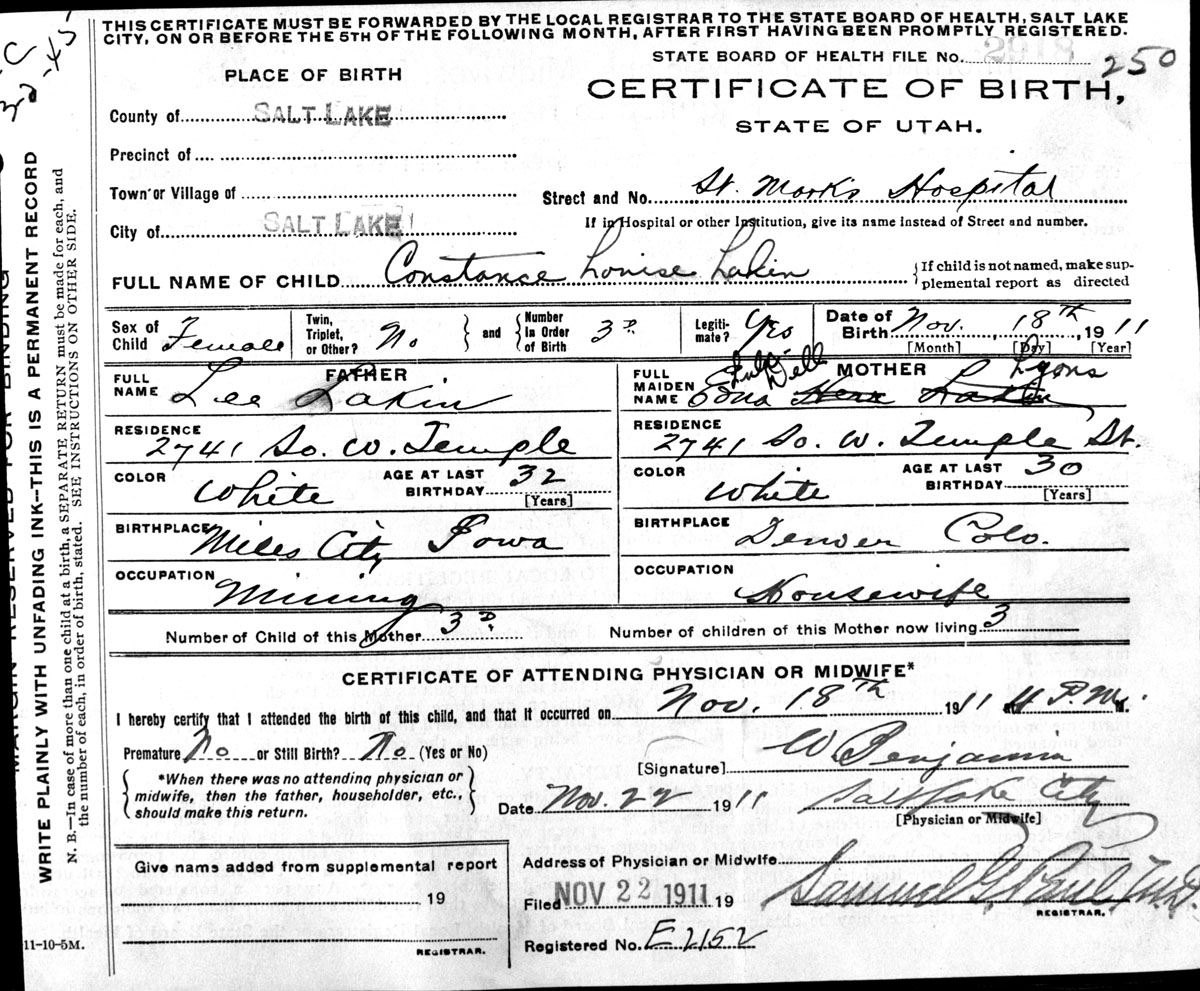 THIS CERTIFICATE MUST BE FORWARDED BY THE LOCAL REGISTRAR TO THE STATE BOARD OF HEALTH, SALT LAKE
CITY, ON OR BEFORE THE 5TH OF THE FOLLOWING MONTH, AFTER FIRST HAVING BEEN PROMPTLY REGISTERED.
STATE BOARD OF HEALTH FILE No. 250
PLACE OF BIRTH
CERTIFICATE OF BIRTH,
STATE OF UTAH.
County of SALT LAKE
Precinct of
Town or Village of
Street and No. St. Marks Hospital
City of SALT LAKE
If in Hospital or other Institution, give its name instead of Street and number.
FULL NAME OF CHILD Constance Louise Lakin
If child is not named, make sup-
plemental report as directed
Sex of Child Female
Twin, Triplet, or Other? No
and Number In Order of Birth 3D.
Legiti-mate? Yes
Date of Birth Nov. 18th 1911
[Month] [Day] [Year]
FATHER
FULL NAME Lee Lakin
RESIDENCE
2741 So. W. Temple
COLOR White
AGE AT LAST BIRTHDAY 32 [Years]
BIRTHPLACE Miles City Iowa
OCCUPATION Mining
MOTHER
FULL MAIDEN NAME Edna Dell Lyons
RESIDENCE
2741 So. W. Temple St.
COLOR White
AGE AT LAST BIRTHDAY 30 [Years]
BIRTHPLACE Denver Colo.
OCCUPATION Housewife
Number of Child of this Mother 3D.
Number of children of this Mother now living 3
CERTIFICATE OF ATTENDING PHYSICIAN OR MIDWIFE*
I hereby certify that I attended the birth of this child, and that it occurred on Nov. 18th 1911 4 P.M.
Premature No or Still Birth? No (Yes or No)
[Signature] W Benjamin
*When there was no attending physician or
midwife, then the father, householder, etc.,
should make this return.
Date Nov. 22 1911 Salt Lake City
[Physician or Midwife]
Give names added from supplemental report
19
REGISTRAR.
Address of Physician or Midwife
Filed NOV 22 1911 19 Samuel G. Paul M.D.
REGISTRAR.
Registered No. E2152
11-10-5M.
MARGIN RESERVED FOR BINDING
WRITE PLAINLY WITH UNFADING INK--THIS IS A PERMANENT RECORD
N. B.—In case of more than one child at a birth, a SEPARATE RETURN must be made for each, and
the number of each, in order of birth, stated. SEE INSTRUCTION ON OTHER SIDE.